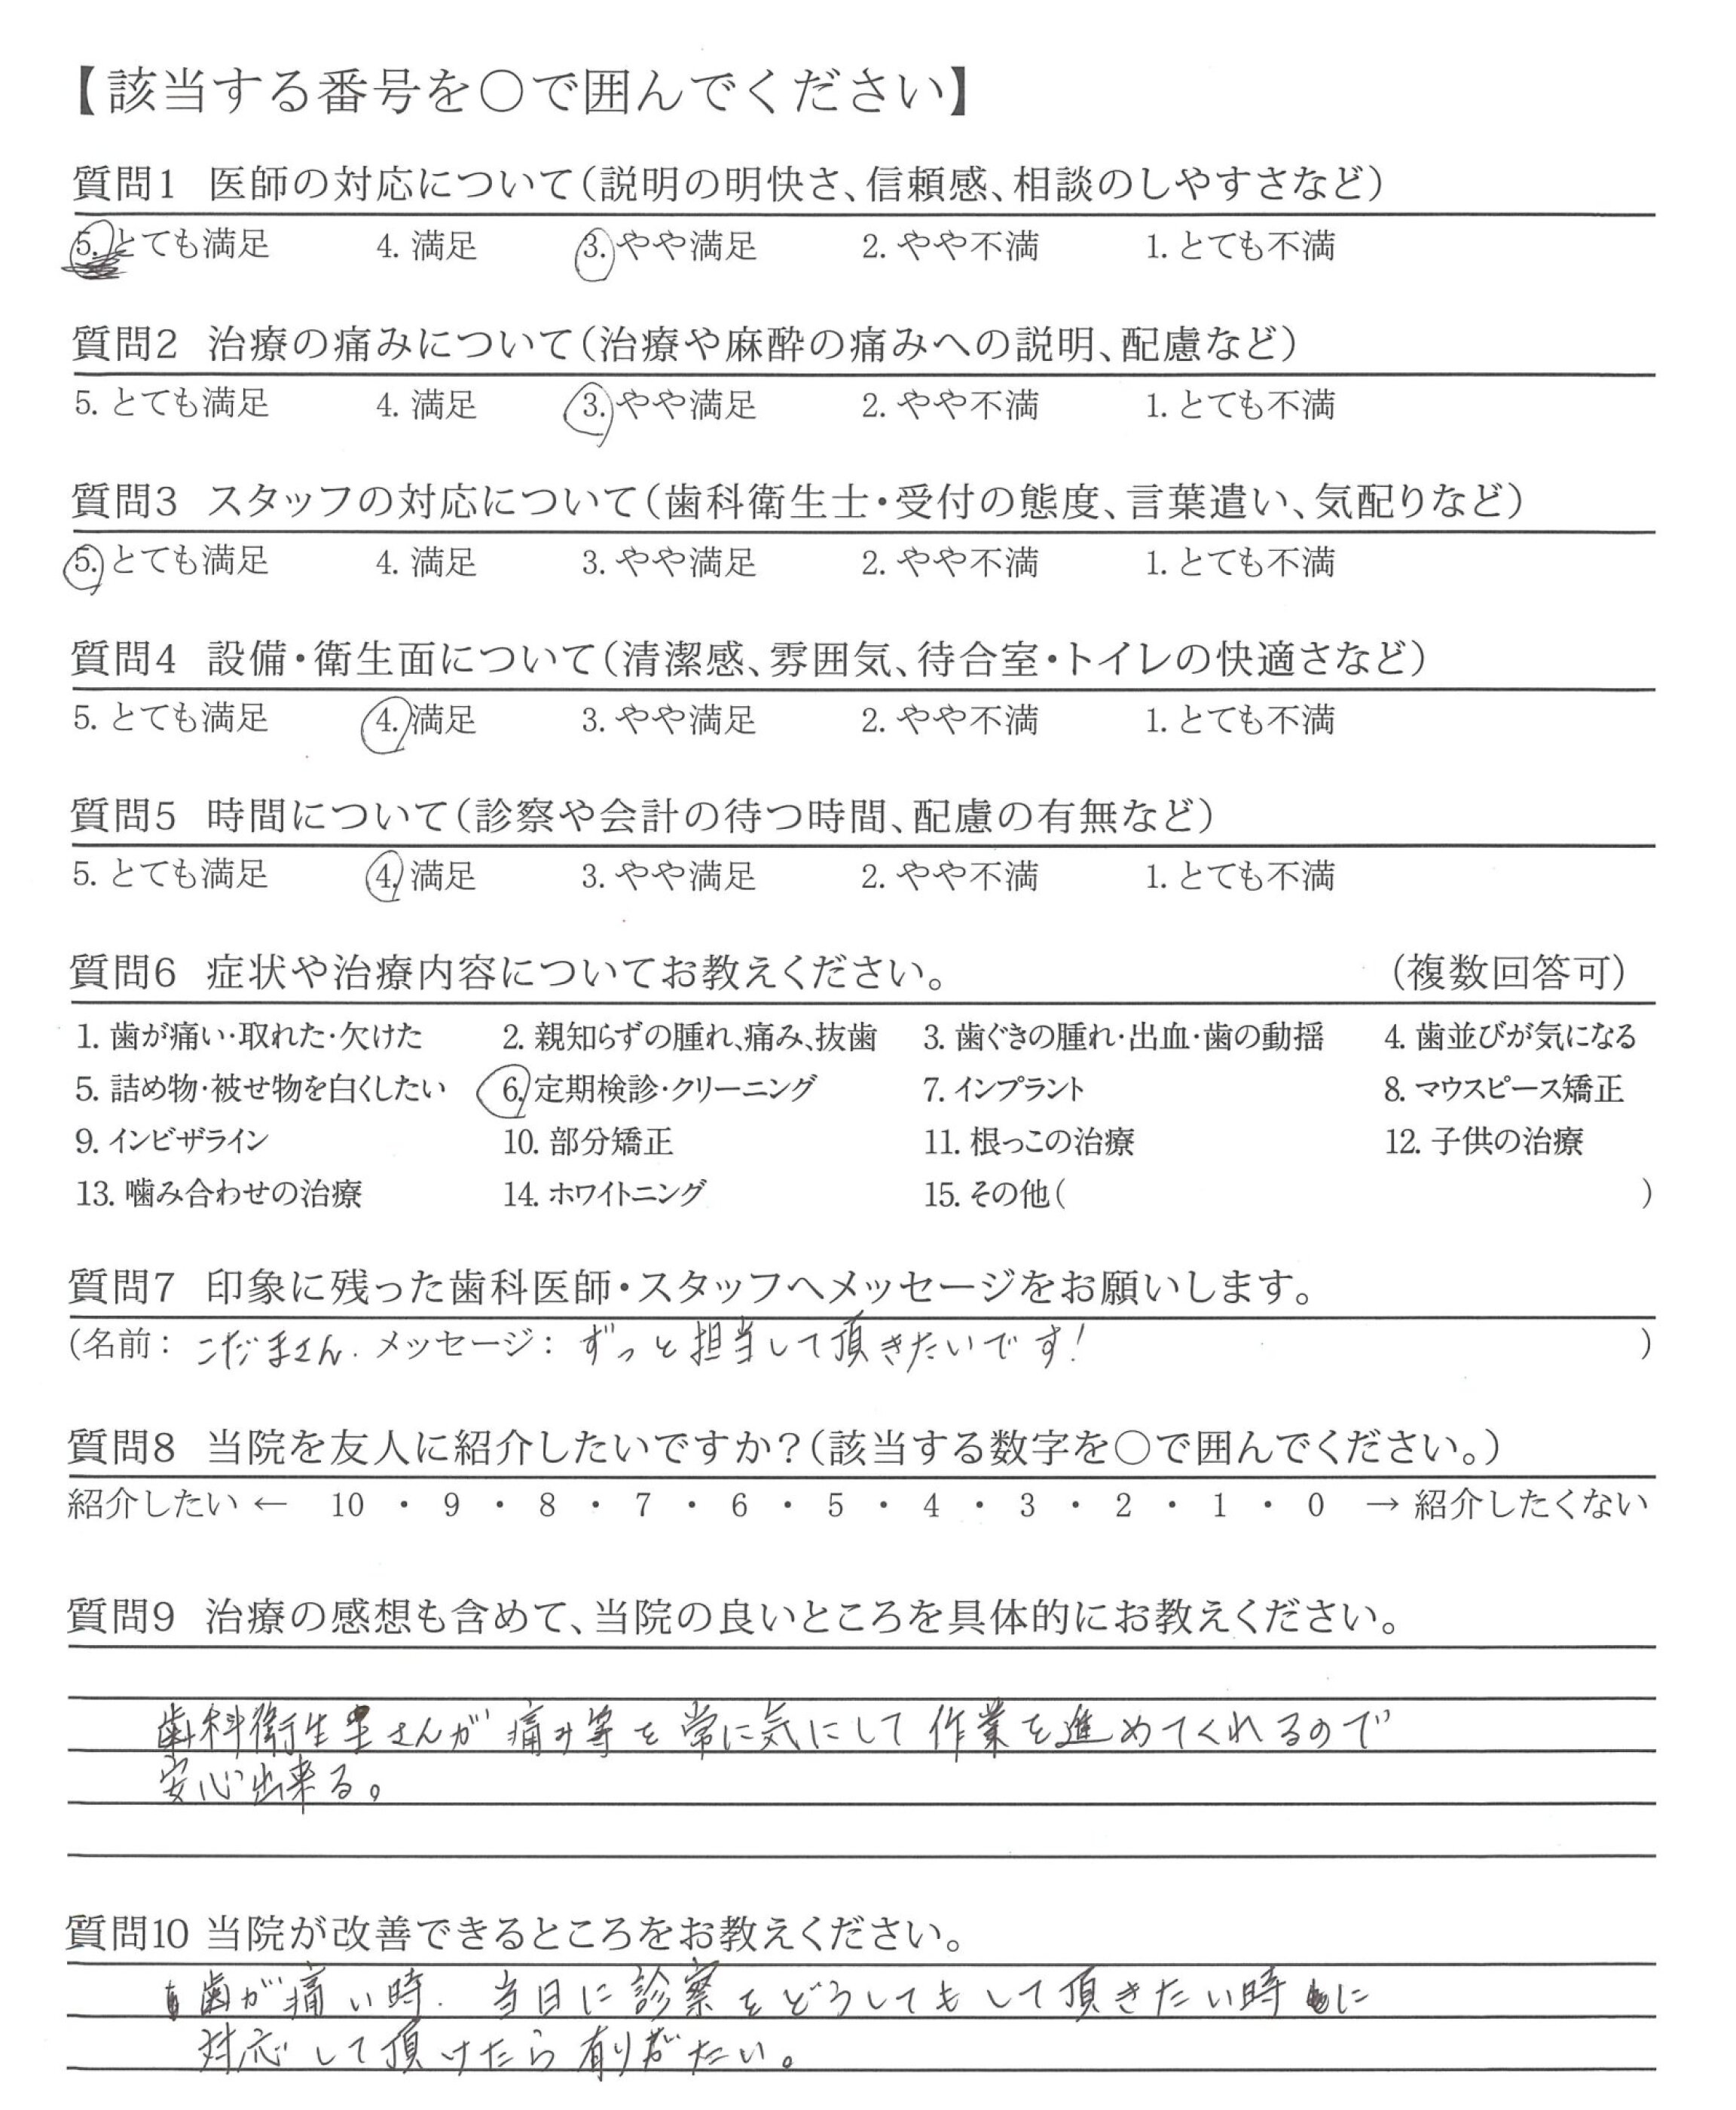 【該当する番号を○で囲んでください】
質問1 医師の対応について(説明の明快さ、信頼感、相談のしやすさなど)
5. とても満足 4. 満足 3. やや満足 2. やや不満 1. とても不満
質問2 治療の痛みについて(治療や麻酔の痛みへの説明、配慮など)
5. とても満足 4. 満足 3. やや満足 2. やや不満 1. とても不満
質問3 スタッフの対応について(歯科衛生士・受付の態度、言葉遣い、気配りなど)
5. とても満足 4. 満足 3. やや満足 2. やや不満 1. とても不満
質問4 設備・衛生面について(清潔感、雰囲気、待合室・トイレの快適さなど)
5. とても満足 4. 満足 3. やや満足 2. やや不満 1. とても不満
質問5 時間について(診察や会計の待つ時間、配慮の有無など)
5. とても満足 4. 満足 3. やや満足 2. やや不満 1. とても不満
質問6 症状や治療内容についてお教えください。 (複数回答可)
1. 歯が痛い・取れた・欠けた 2. 親知らずの腫れ、痛み、抜歯 3. 歯ぐきの腫れ・出血・歯の動揺 4. 歯並びが気になる
5. 詰め物・被せ物を白くしたい 6. 定期検診・クリーニング 7. インプラント 8. マウスピース矯正
9. インビザライン 10. 部分矯正 11. 根っこの治療 12. 子供の治療
13. 噛み合わせの治療 14. ホワイトニング 15. その他( )
質問7 印象に残った歯科医師・スタッフへメッセージをお願いします。
(名前: こだまさん. メッセージ: ずっと担当して頂きたいです! )
質問8 当院を友人に紹介したいですか?(該当する数字を○で囲んでください。)
紹介したい ← 10 ・ 9 ・ 8 ・ 7 ・ 6 ・ 5 ・ 4 ・ 3 ・ 2 ・ 1 ・ 0 → 紹介したくない
質問9 治療の感想も含めて、当院の良いところを具体的にお教えください。
歯科衛生士さんが痛み等を常に気にして作業を進めてくれるので
安心出来る。
質問10 当院が改善できるところをお教えください。
歯が痛い時. 当日に診察をどうしてもして頂きたい時に
対応して頂けたら有りがたい。